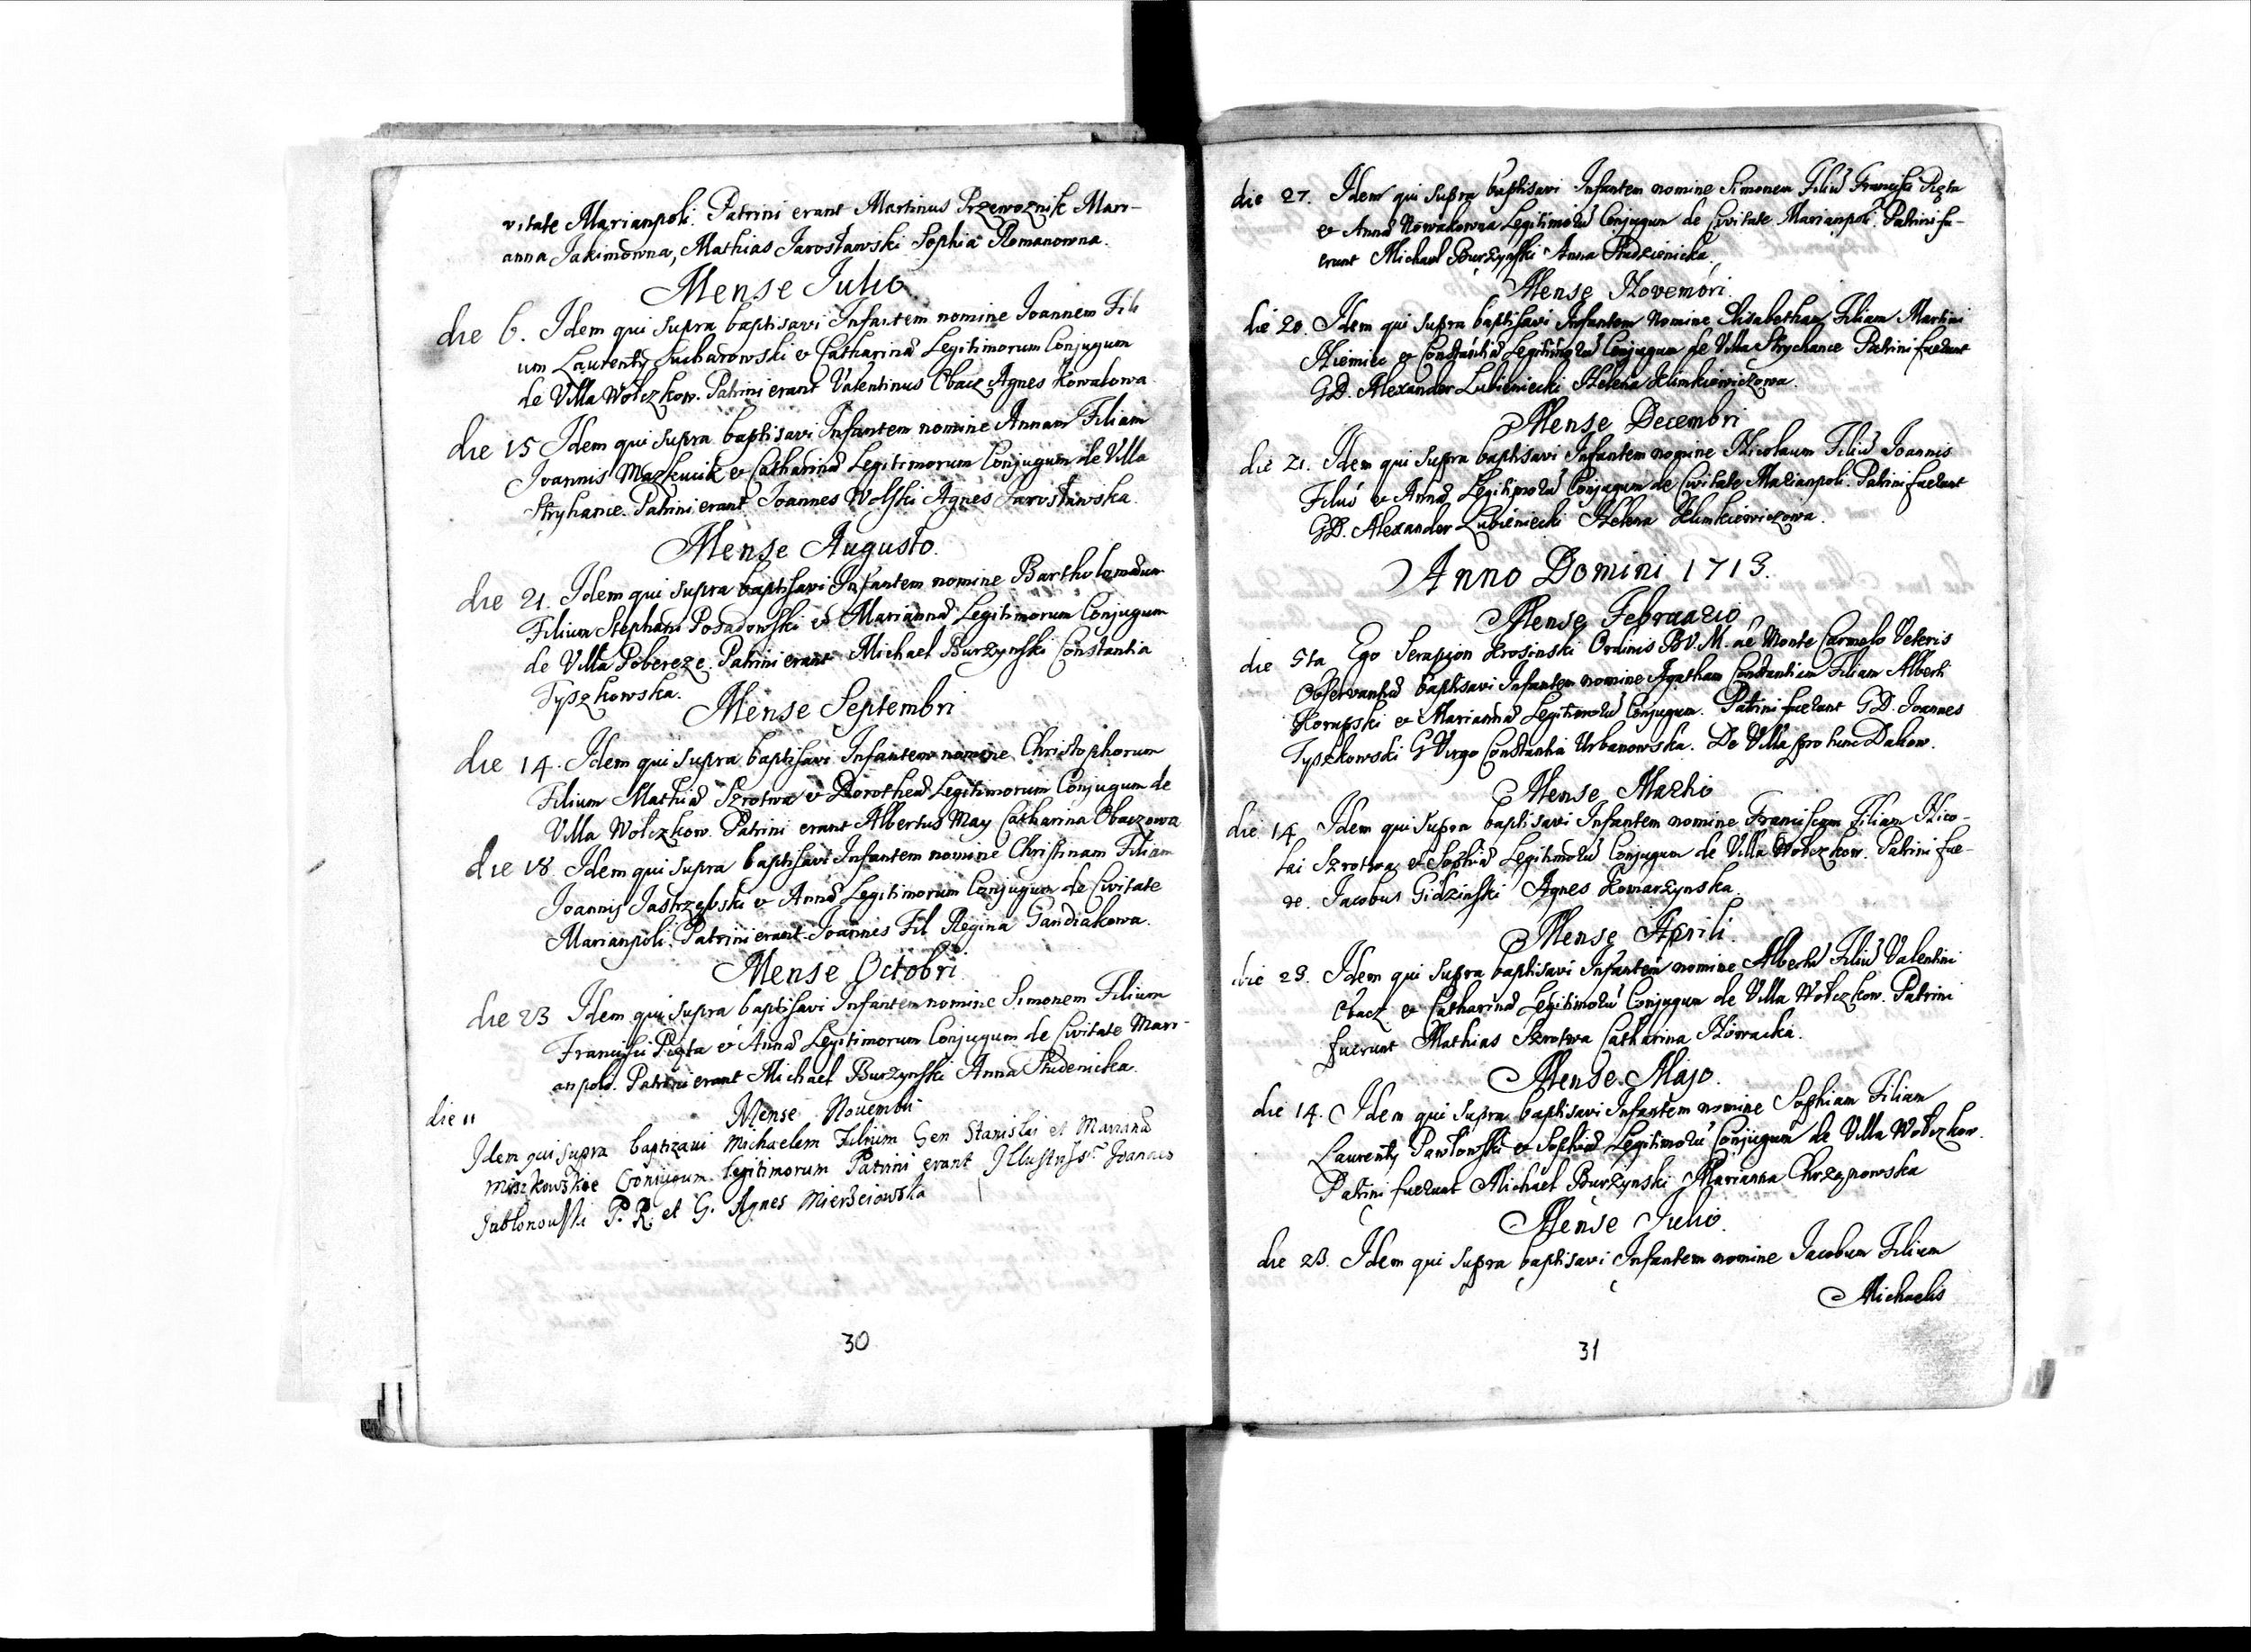 vitate Marianpoli. Patrini erant Martinus Przewoznik Mari-
anna Jakimowna, Mathias Jarosławski Sophia Romanowna.
Mense Julio
die 6. Idem qui supra baptisavi Infantem nomine Joannem Fili
um Laurenty Sucharowski et Catharinæ Legitimorum Conjugum
de Villa Wołczkow. Patrini erant Valentinus Obacz Agnes Kowalowa
die 15 Idem qui supra baptisavi Infantem nomine Annam Filiam
Joannis et Catharinæ Legitimorum Conjugum de Villa
Stryhance. Patrini erant Joannes Wolski Agnes Jarosławska
Mense Augusto.
die 21. Idem qui supra baptisavi Infantem nomine Bartholomæum
Filium Stephani Posadowski et Mariannæ Legitimorum Conjugum
de Villa Pobereze. Patrini erant Michael Burzynski Constantia
Tyszkowska.
Mense Septembri
die 14. Idem qui supra baptisavi Infantem nomine Christophorum
Filium Mathiæ Szrotwa et Dorotheæ Legitimorum Conjugum de
Villa Wołczkow. Patrini erant Albertus May Catharina Obaczowa
die 18. Idem qui supra baptisavi Infantem nomine Christinam Filiam
Joannis Jastrzębski et Annæ Legitimorum Conjugum de Civitate
Marianpoli. Patrini erant Joannes Fil Regina Gandiakowa.
Mense Octobri
die 23 Idem qui supra baptisavi Infantem nomine Simonem Filium
Francisci Pięta et Annæ Legitimorum Conjugum de Civitate Mari-
anpoli. Patrini erant Michael Burzynski Anna Studenicka.
die 11 Mense Nouembri
Idem qui supra baptizaui Michaelem Filium Gen Stanislai et Marianæ
Miszkowskie Coniugum legitimorum Patrini erant Illustriss. Joannes
Jabłonouski P. R. et G. Agnes Mierzeiowska
30
die 27. Idem qui supra baptisavi Infantem nomine Simonem Filiū Francisci Pięta
et Annæ Nowakowna Legitimorū Conjugum de Civitate Marianpoli. Patrini fu-
erunt Michael Burzynski Anna Studzienicka.
Mense Novembri.
die 20. Idem qui supra baptisavi Infantem Nomine Elisabetham Filiam Martini
Niemiec et Constantiæ Legitimorū Conjugum de Villa Strychance Patrini fuerunt
GD. Alexander Lubieniecki Helena Klimkiewiczowa.
Mense Decembri
die 21. Idem qui supra baptisavi Infantem nomine Nicolaum Filiū Joannis
et Annæ Legitimorū Conjugum de Civitate Marianpoli. Patrini fuerunt
GD. Alexander Lubieniecki Helena Klimkiewiczowa.
Anno Domini 1713.
Mense Februario
die 5ta Ego Serapion Krosinski Ordinis B.V.M. de Monte Carmelo Veteris
Observantiæ baptisavi Infantem nomine Agatham Constantiam Filiam Alberti
Korupski et Mariannæ Legitimorū Conjugum. Patrini fuerunt GD. Joannes
Tyszkowski G Virgo Constantia Urbanowska. De Villa pro tunc Dahow.
Mense Martio
die 14. Idem qui supra baptisavi Infantem nomine Franciscam Filiam Nico-
lai Szrotwa et Sophiæ Legitimorū Conjugum de Villa Wołczkow. Patrini fue-
re. Jacobus Gidzinski Agnes Kowarzynska.
Mense Aprili.
die 23. Idem qui supra baptisavi Infantem nomine Albertū Filiū Valentini
Obacz et Catharinæ Legitimorū Conjugum de Villa Wołczkow. Patrini
fuerunt Mathias Szrotwa Catharina Nowacka.
Mense Majo.
die 14. Idem qui supra baptisavi Infantem nomine Sophiam Filiam
Laurenty Pawłowski et Sophiæ Legitimorū Conjugum de Villa Wołczkow.
Patrini fuerunt Michael Burzynski Marianna Chrzanowska
Mense Julio.
die 23. Idem qui supra baptisavi Infantem nomine Jacobum Filium
Michaelis
31